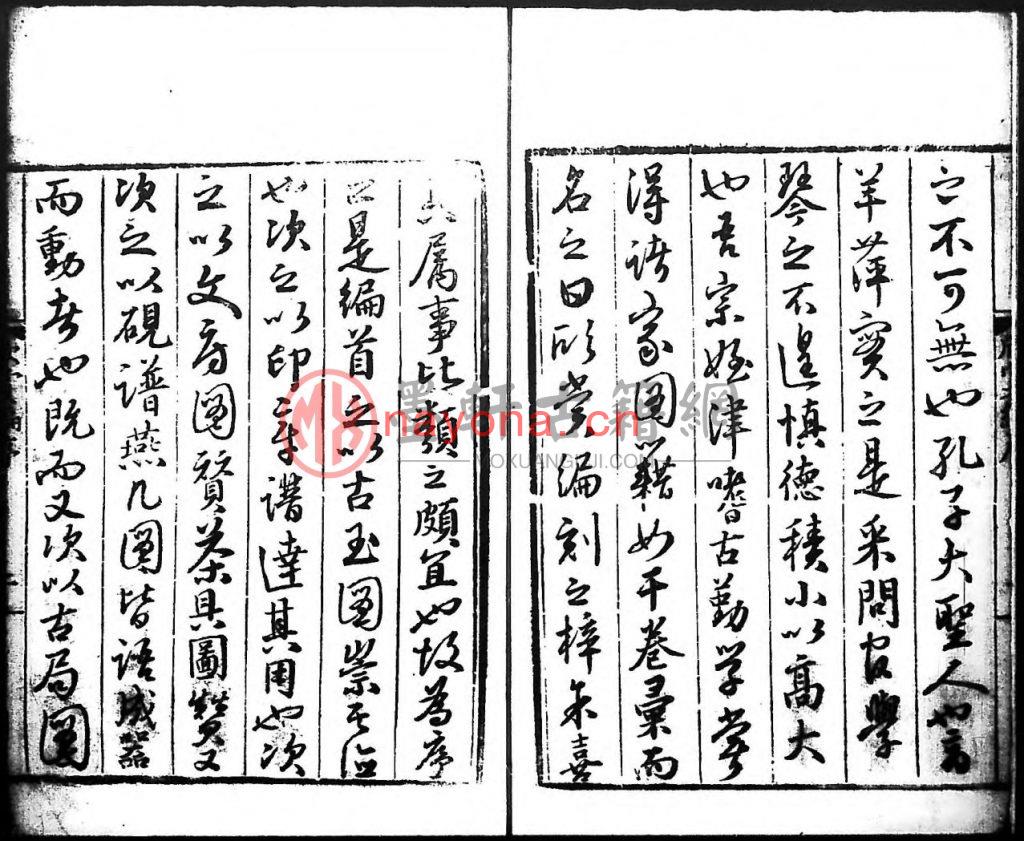 之不可無也孔子大聖人也商
羊萍實之是采問官學
琴之不遑慎德積小以高大
也吾宗姪津嗜古勤学嘗
得諸家圖籍如干卷彙而
名之曰欣賞編刻之梓余喜
其屬事比類之頗宜也故為序
曰是編首之以古玉圖崇其
也次之以印章譜達其用也次
之以文房圖贊茶具圖贊又
次之以硯譜燕几圖皆語成器
而動者也既而又次以古局圖
墨軒古籍網
nayona.cn